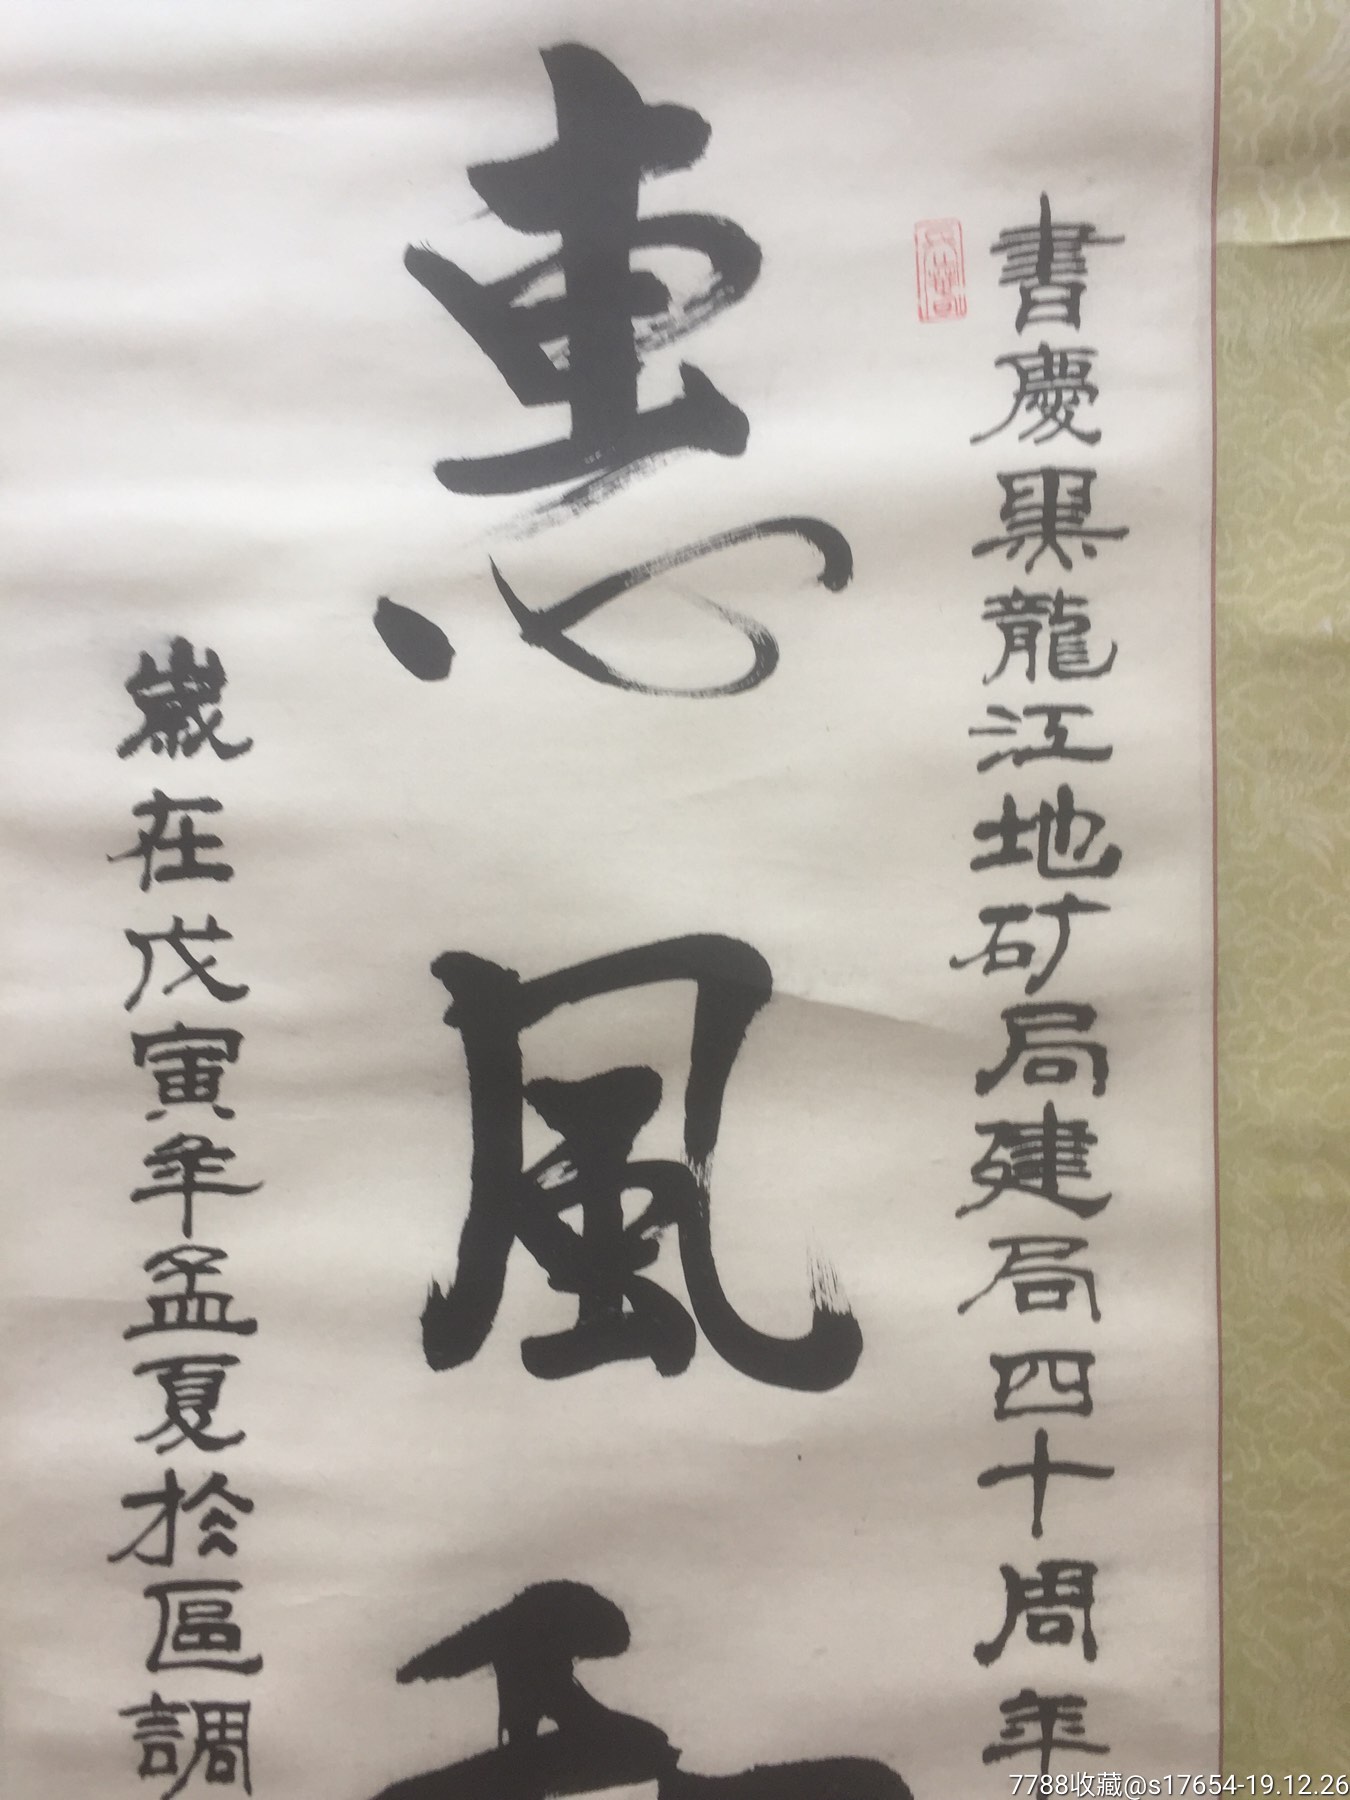 書慶黑龍江地矿局建局四十周年
惠風
歲在戊寅年孟夏於區調
7788收藏@s17654-19.12.26